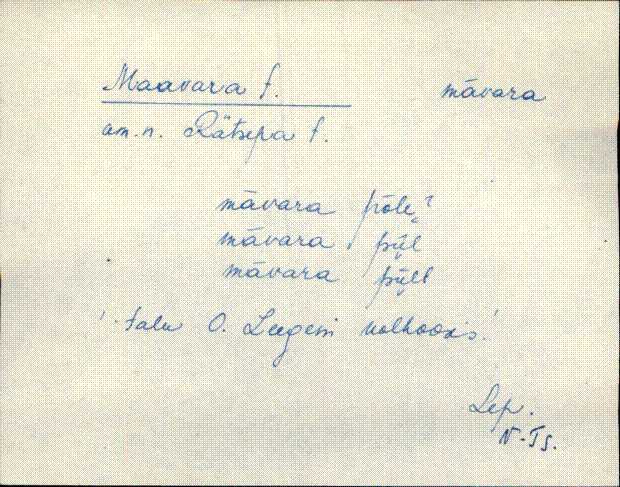 Maavara t. māvara
am.n. Rätsepa t.
māvara pōle?
māvara pǖl
māvara pǖlt
! talu O. Luigeni kolhoosis!
Lep.
N-Ts.